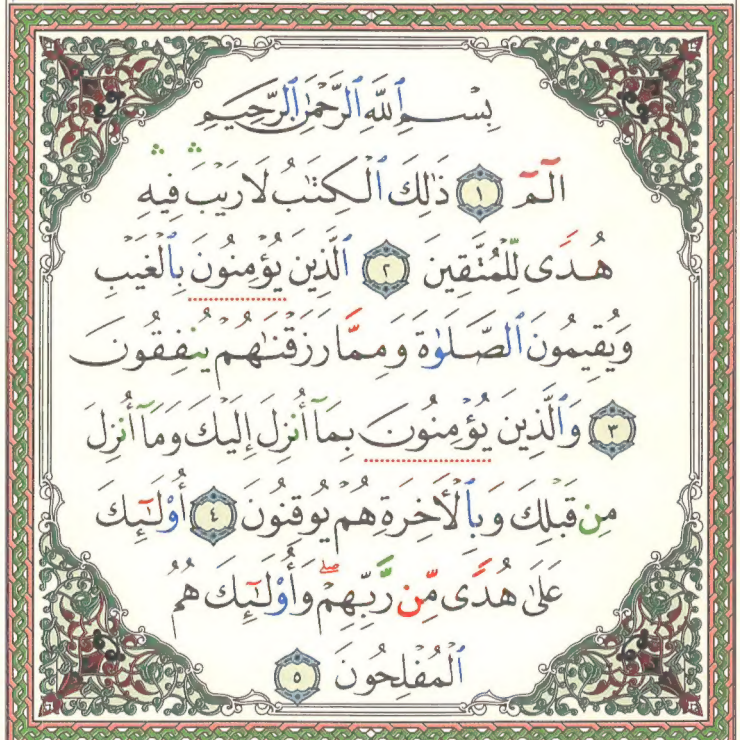 بِسْمِ ٱللَّهِ ٱلرَّحْمَٰنِ ٱلرَّحِيمِ
الٓمٓ ١ ذَٰلِكَ ٱلْكِتَٰبُ لَا رَيْبَ ۛ فِيهِ ۛ
هُدًى لِّلْمُتَّقِينَ ٢ ٱلَّذِينَ يُؤْمِنُونَ بِٱلْغَيْبِ
وَيُقِيمُونَ ٱلصَّلَوٰةَ وَمِمَّا رَزَقْنَٰهُمْ يُنفِقُونَ
٣ وَٱلَّذِينَ يُؤْمِنُونَ بِمَآ أُنزِلَ إِلَيْكَ وَمَآ أُنزِلَ
مِن قَبْلِكَ وَبِٱلْأَخِرَةِ هُمْ يُوقِنُونَ ٤ أُوْلَٰٓئِكَ
عَلَىٰ هُدًى مِّن رَّبِّهِمْ ۖ وَأُوْلَٰٓئِكَ هُمُ
ٱلْمُفْلِحُونَ ٥